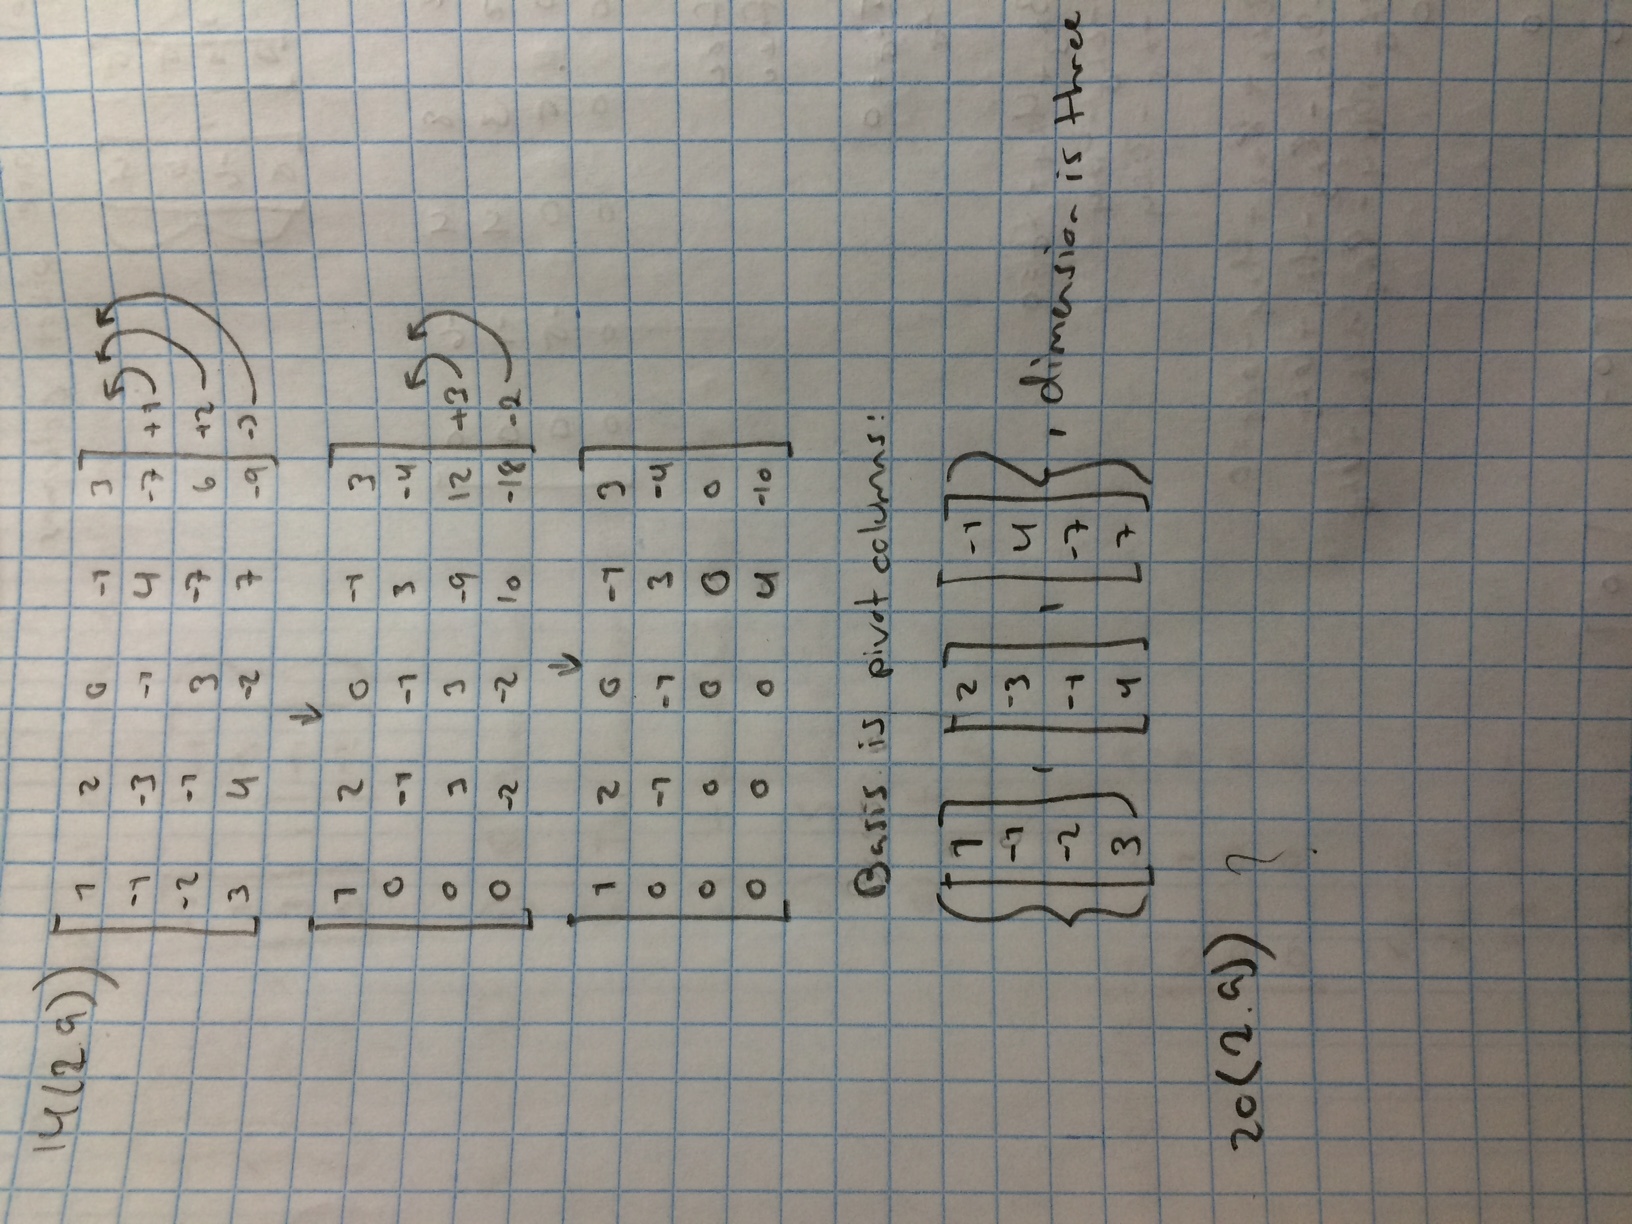 14(2.9))
1 2 0 -1 3
-1 -3 -1 4 -7 +1
-2 -1 3 -7 6 +2
3 4 -2 7 -9 -3
↓
1 2 0 -1 3
0 -1 -1 3 -4
0 3 3 -9 12 +3
0 -2 -2 10 -18 -2
↓
1 2 0 -1 3
0 -1 -1 3 -4
0 0 0 0 0
0 0 0 4 -10
Basis is pivot columns:
{[1 -1 -2 3], [2 -3 -1 4], [-1 4 -7 7]}, dimension is three
20(2.9)) ?